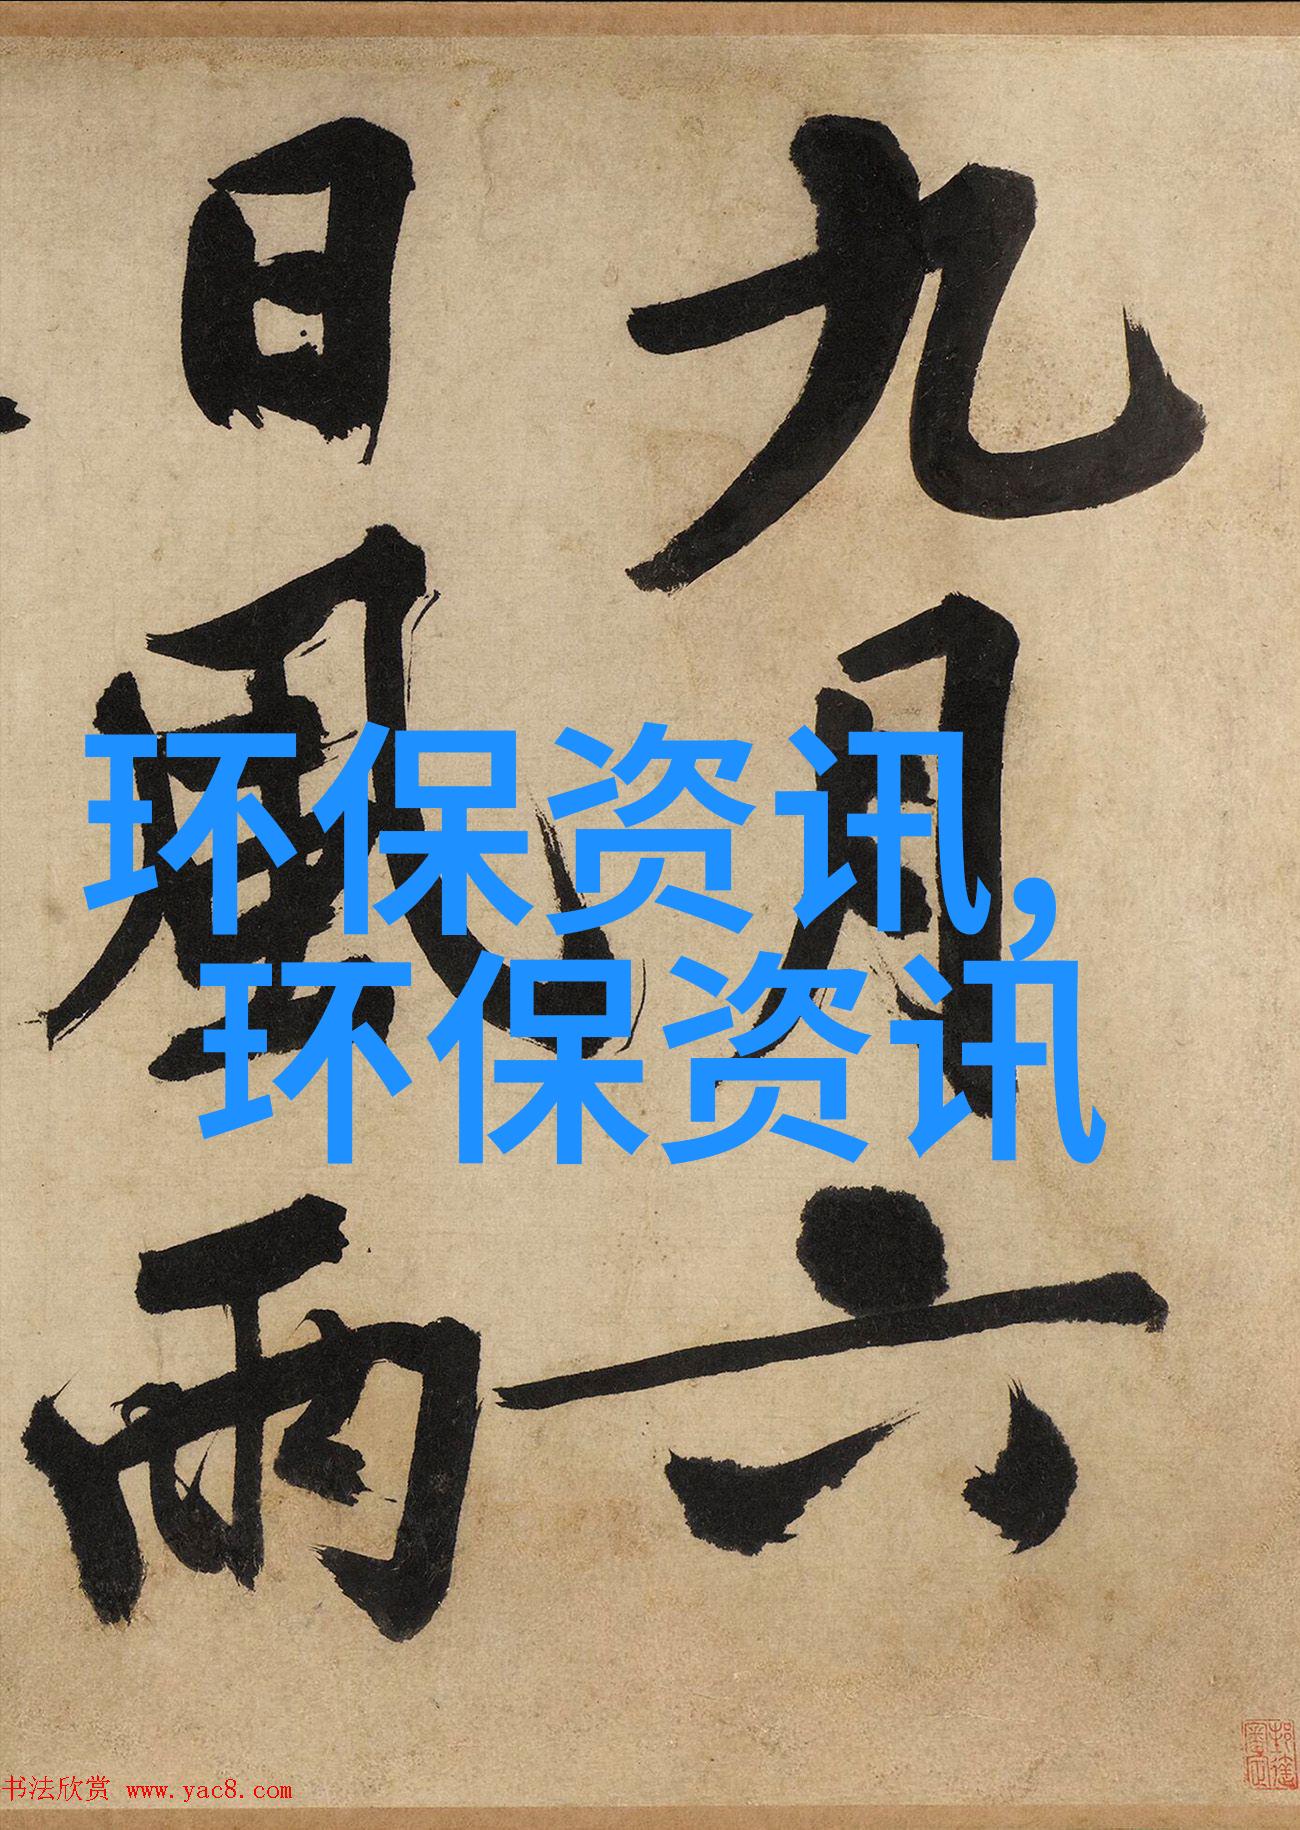 九月六
日风雨
环保资讯,
环保资讯
书法欣赏 www.yac8.com